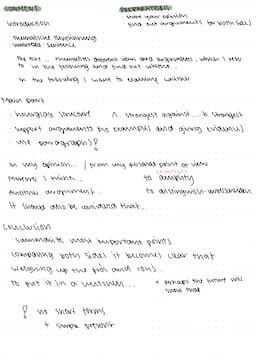 COMMENT
- state your opinion
find out arguments (for both sides)
Introduction
thematisize
sentence
The text... thematises different views and arguments, which I refer
to in the following and find out whether...
In the following I want to examine whether
Main part
- hourglass structure 1. strongest against... 6. strongest
- support arguments by examples and giving evidence
- use paragraphs!
In my opinion... / from my personal point of view
Moreover I think... to amplify
Another argument... to distinguish
It should also be considered that...
Conclusion
- summarize most important points
comparing both sides it becomes clear that
weighing up the pros and cons...
to put it in a nutshell... + perhaps the future will
show that
! no short forms
+ simple present